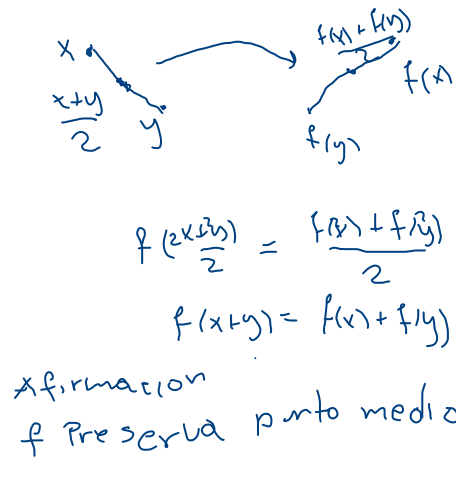 x
x+y
2
y
f(x) + f(y)
2
f(x)
f(y)
f(2x+2y)
2
=
f(2x) + f(2y)
2
f(x+y) = f(x) + f(y)
Afirmacion
f Preserva punto medio